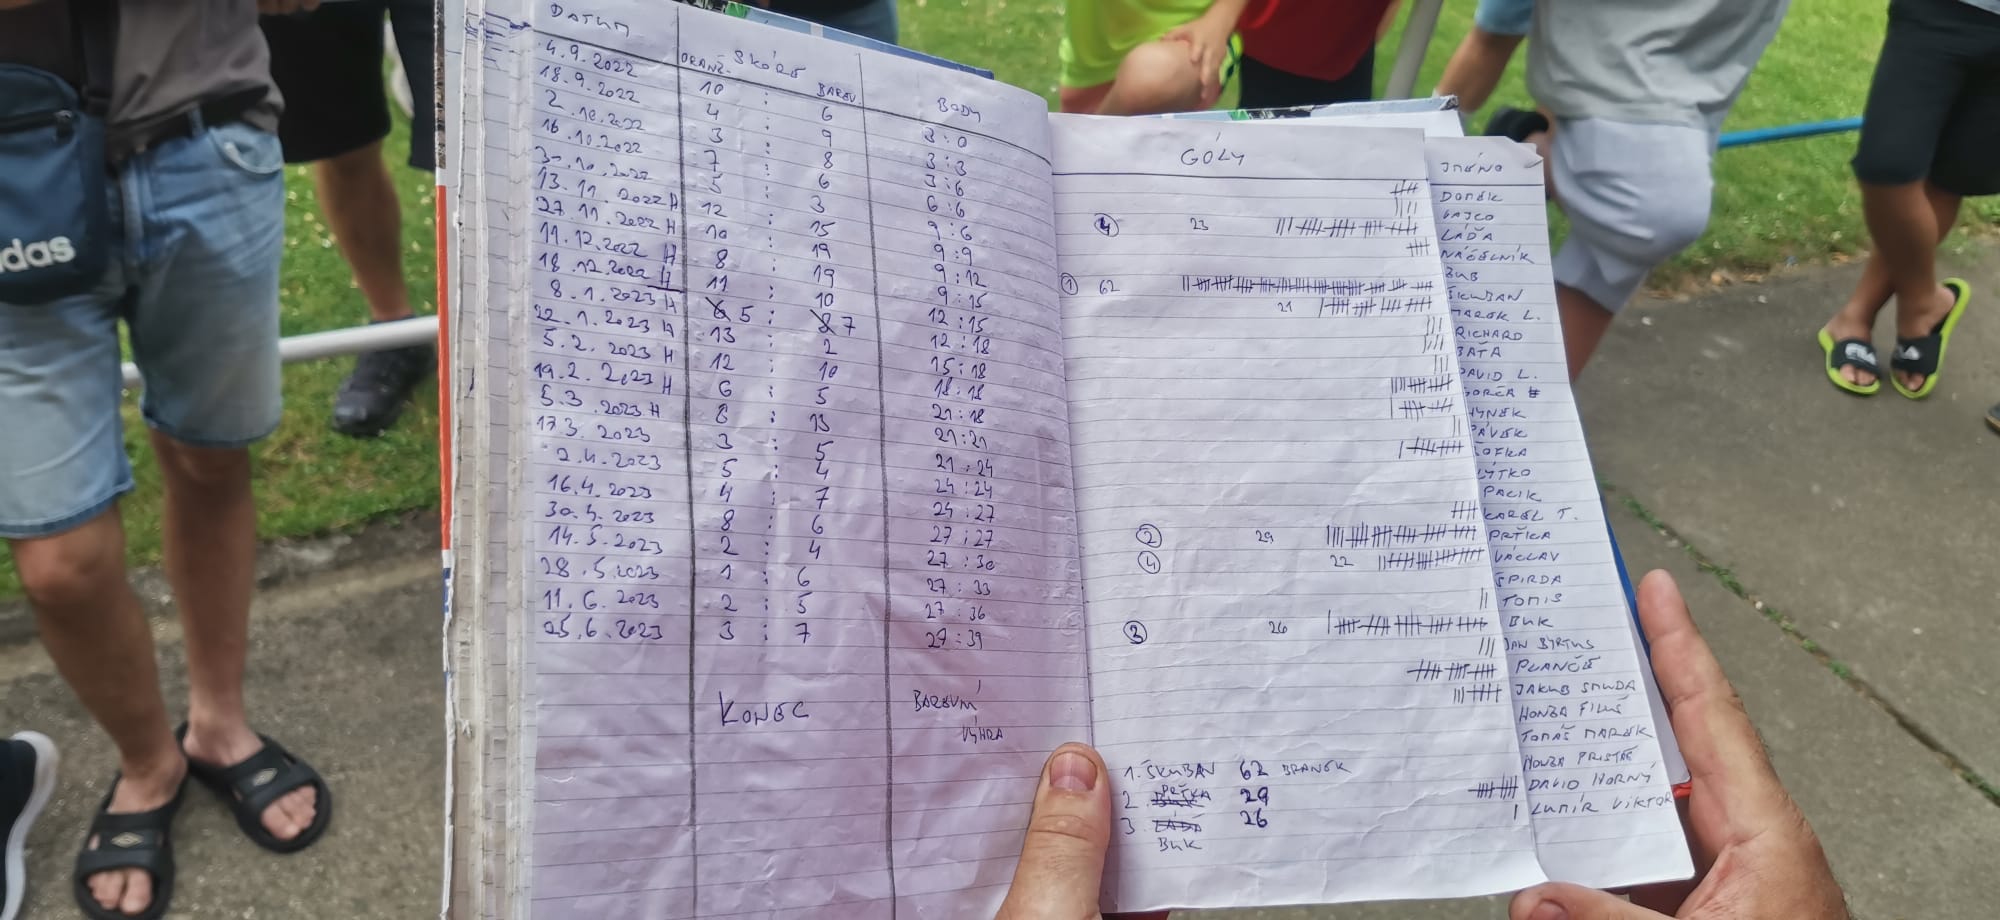 DATUM SKÓRE BODY
ORANŽ. BAREV.
4.9.2022 10 : 6 3:0
18.9.2022 4 : 9 3:3
2.10.2022 3 : 8 3:6
16.10.2022 7 : 6 6:6
30.10.2022 5 : 3 9:6
13.11.2022 H 12 : 15 9:9
27.11.2022 H 10 : 19 9:12
11.12.2022 H 8 : 19 9:15
18.12.2022 H 11 : 10 12:15
8.1.2023 H 5 : 7 12:18
22.1.2023 H 13 : 2 15:18
5.2.2023 H 12 : 10 18:18
19.2.2023 H 6 : 5 21:18
5.3.2023 H 8 : 13 21:21
17.3.2023 3 : 5 21:24
2.4.2023 5 : 4 24:24
16.4.2023 4 : 7 24:27
30.4.2023 8 : 6 27:27
14.5.2023 2 : 4 27:30
28.5.2023 1 : 6 27:33
11.6.2023 2 : 5 27:36
25.6.2023 3 : 7 27:39
KONEC BAREVNÍ
VÝHRA
GÓLY JMÉNO
DOMČK
GAJCO
4 23 LÁĎA
NÁČELNÍK
BUB
1 62 ŠKUBAN
21 MAREK L.
RICHARD
BAŤA
DAVID L.
HYNEK
PÁVEK
LÝTKO
PACIK
KAREL T.
2 29 PRTKA
4 22 VÁCLAV
ŠPIRDA
TOMIS
3 26 BUK
JAN BYRTUS
PLANČE
JAKUB SMUDA
HONZA FILUŠ
TOMÁŠ MAREK
HONZA PRISTAŠ
DAVID HORNÝ
LUMÍR VIKTOR
1. ŠKUBAN 62 BRANEK
2. PRTKA 29
3. BUK 26
adas
FILA